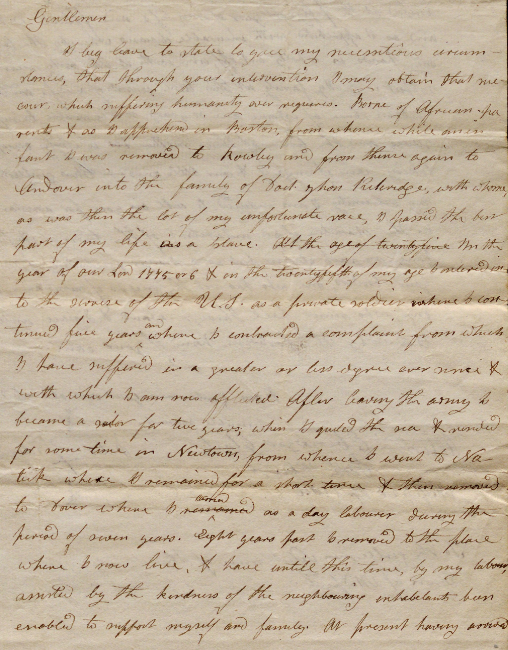 Gentlemen
I beg leave to state to you my necessitious circum-
stances, that through your intervention I may obtain that suc-
cour which suffering humanity ever requires. Borne of African pa
rents & as I apprehend in Boston, from whence while an in
fant I was removed to Rowley and from thence again to
Andover into the family of Doct. Thos Kitteridge, with whom,
as was then the lot of my unfortunate race, I passed the best
part of my life as a slave. At the age of twentyfive In the
year of our Lord 1775 or 6 & in the twentyfifth of my age I entered in-
to the service of the U.S. as a private soldier where I con-
tinued five years and where I contracted a complaint from which
I have suffered in a greater or less degree ever since &
with which I am now afflicted. After leaving the army I
became a sailor for two years, when I quited the sea & resided
for some time in Newtown, from whence I went to Na-
tick where I remained for a short time & then removed
to Dover where I remained as a day labourer during the
period of seven years. Eight years past I removed to the place
where I now live, & have untill this time, by my labour,
assisted by the kindness of the neighbouring inhabitants been
enabled to support myself and family. At present having arrived